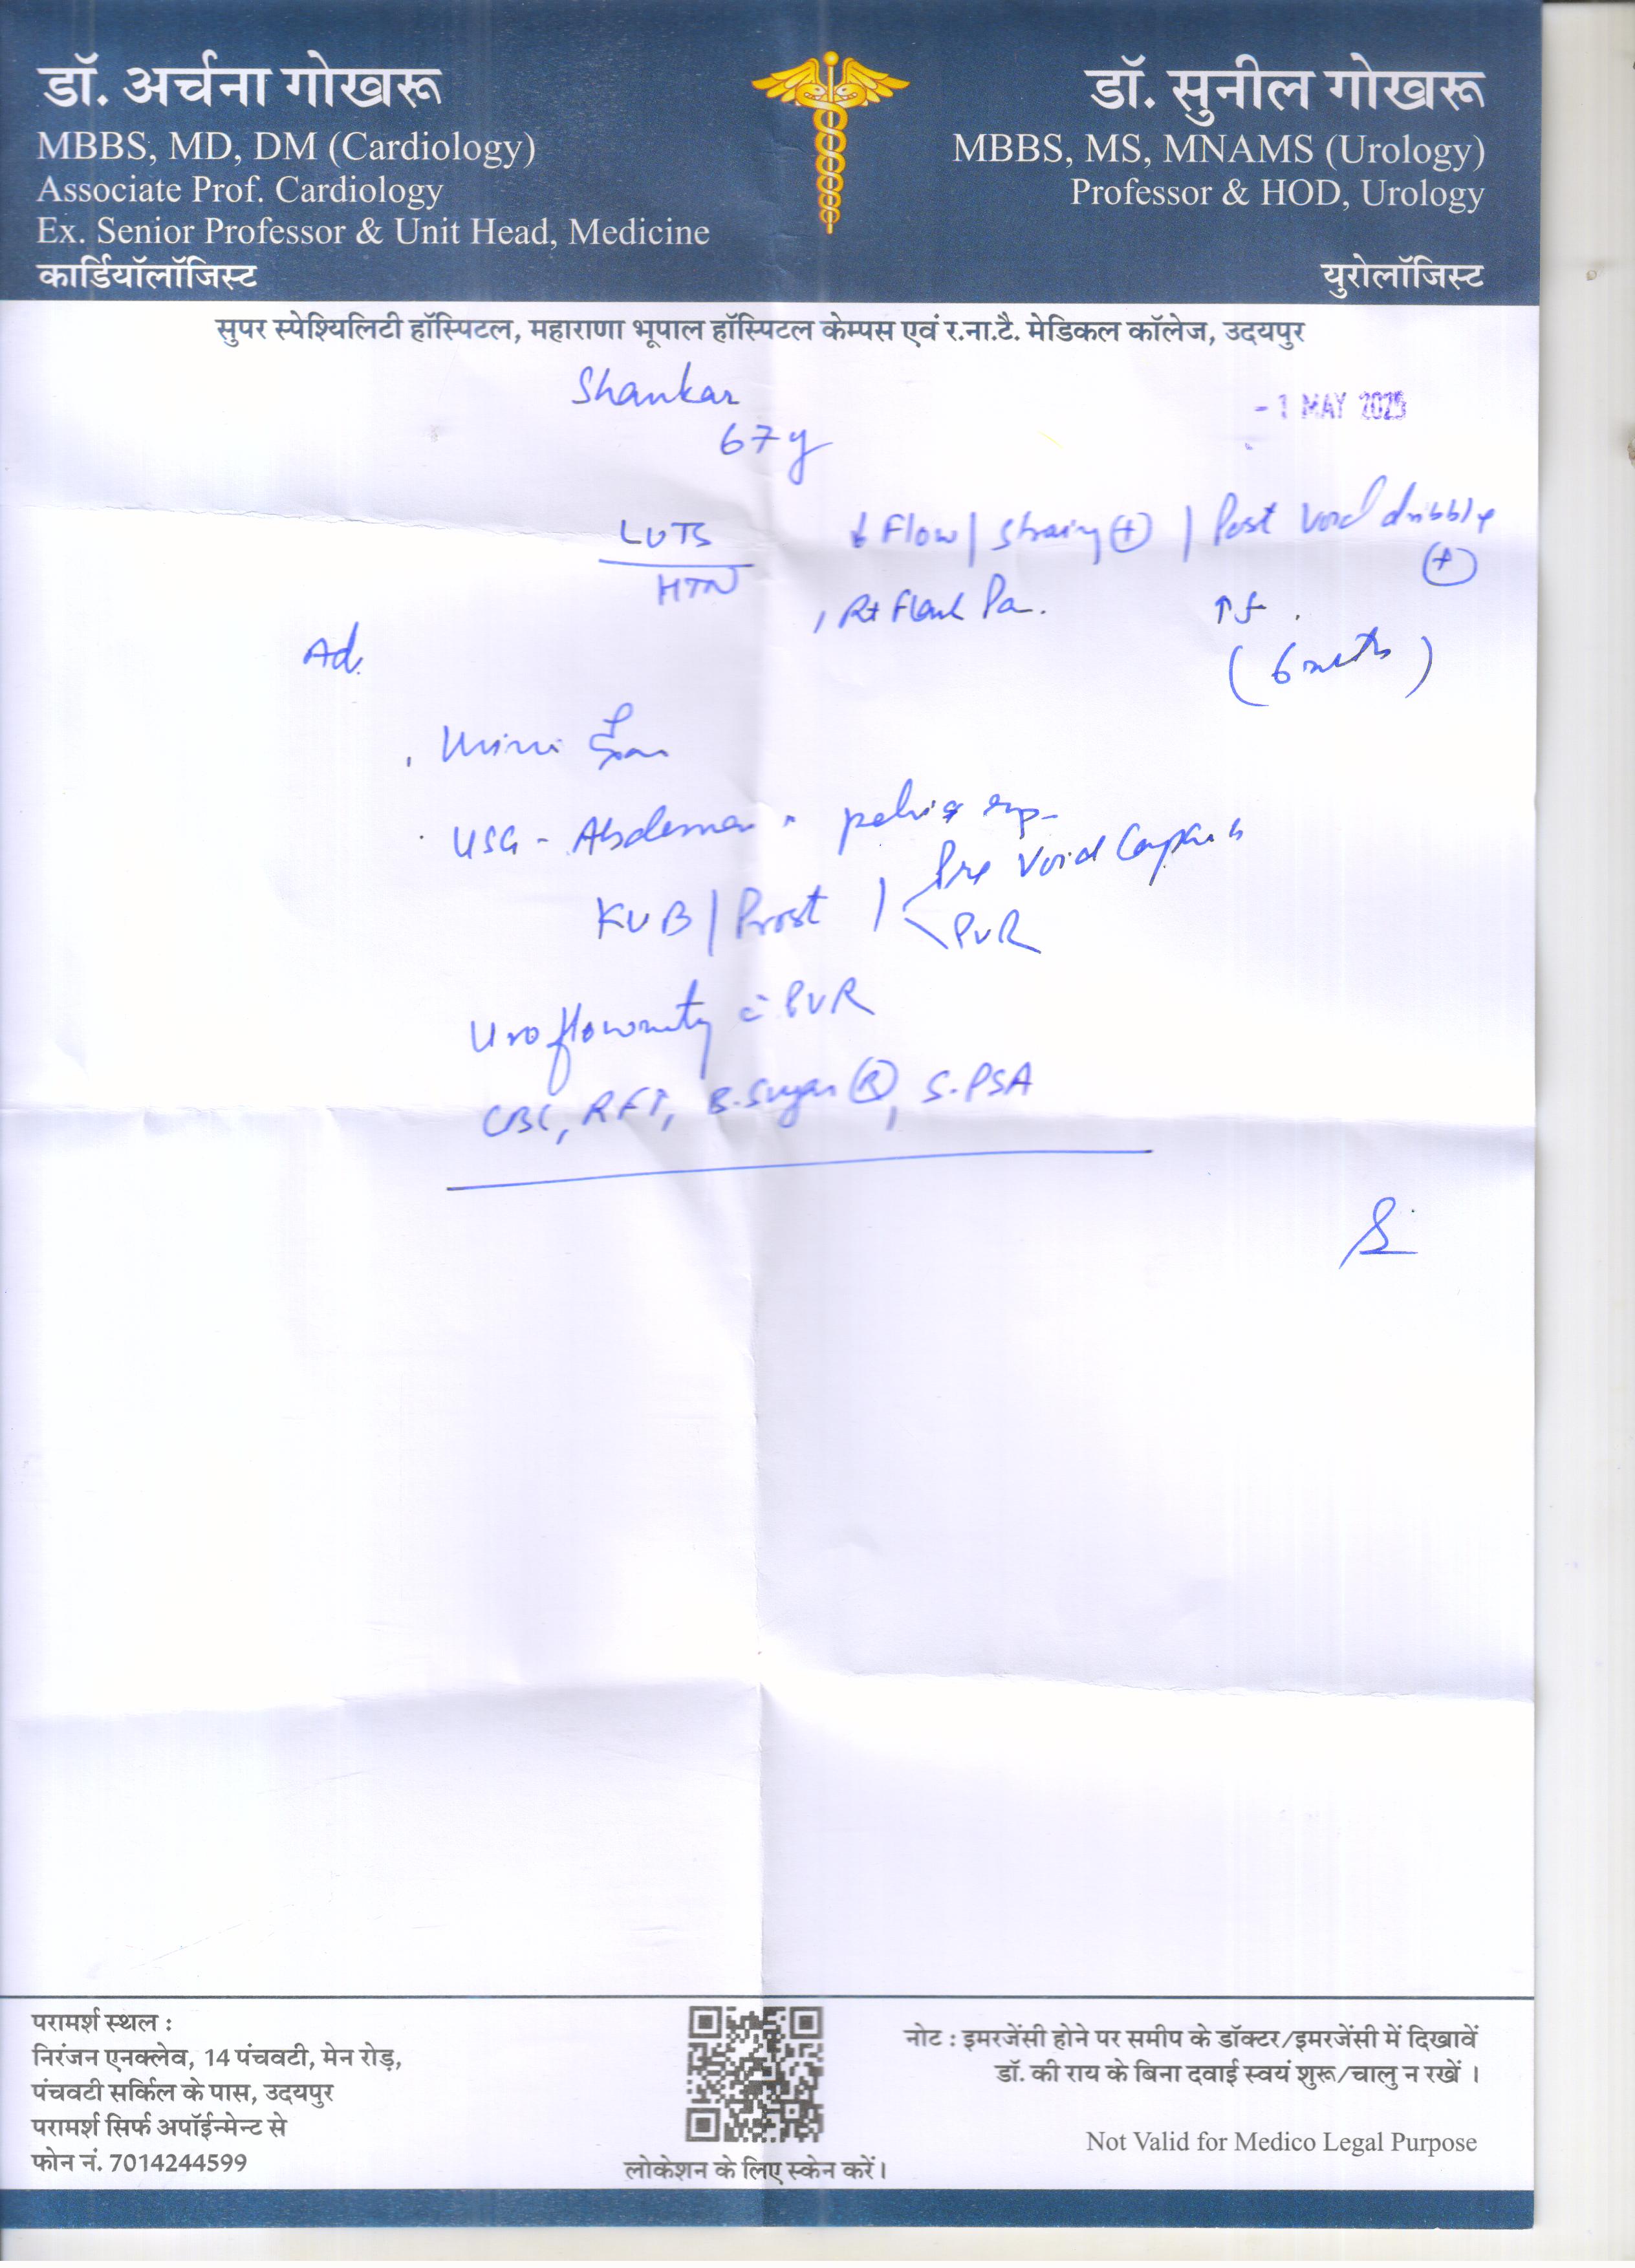 डॉ. अर्चना गोखरू
MBBS, MD, DM (Cardiology)
Associate Prof. Cardiology
Ex. Senior Professor & Unit Head, Medicine
कार्डियॉलॉजिस्ट
डॉ. सुनील गोखरू
MBBS, MS, MNAMS (Urology)
Professor & HOD, Urology
युरोलॉजिस्ट
सुपर स्पेश्यिलिटी हॉस्पिटल, महाराणा भूपाल हॉस्पिटल केम्पस एवं र.ना.टै. मेडिकल कॉलेज, उदयपुर
Shankar
- 1 MAY 2025
67 y
LUTS
HTN
↓ Flow | Strainig (+) | Post Void dribble (+)
, Rt Flank Pa.
↑ f .
(6 mths)
Ad.
Urine
USG - Abdomen pelvis
KUB | Prost | Pre Void
PVR
Uroflowmetry c̄ PVR
CBC, RFT, B.Sugar (R), S.PSA
परामर्श स्थल :
निरंजन एनक्लेव, 14 पंचवटी, मेन रोड़,
पंचवटी सर्किल के पास, उदयपुर
परामर्श सिर्फ अपॉईन्मेन्ट से
फोन नं. 7014244599
लोकेशन के लिए स्केन करें।
नोट : इमरजेंसी होने पर समीप के डॉक्टर/इमरजेंसी में दिखावें
डॉ. की राय के बिना दवाई स्वयं शुरू/चालु न रखें ।
Not Valid for Medico Legal Purpose